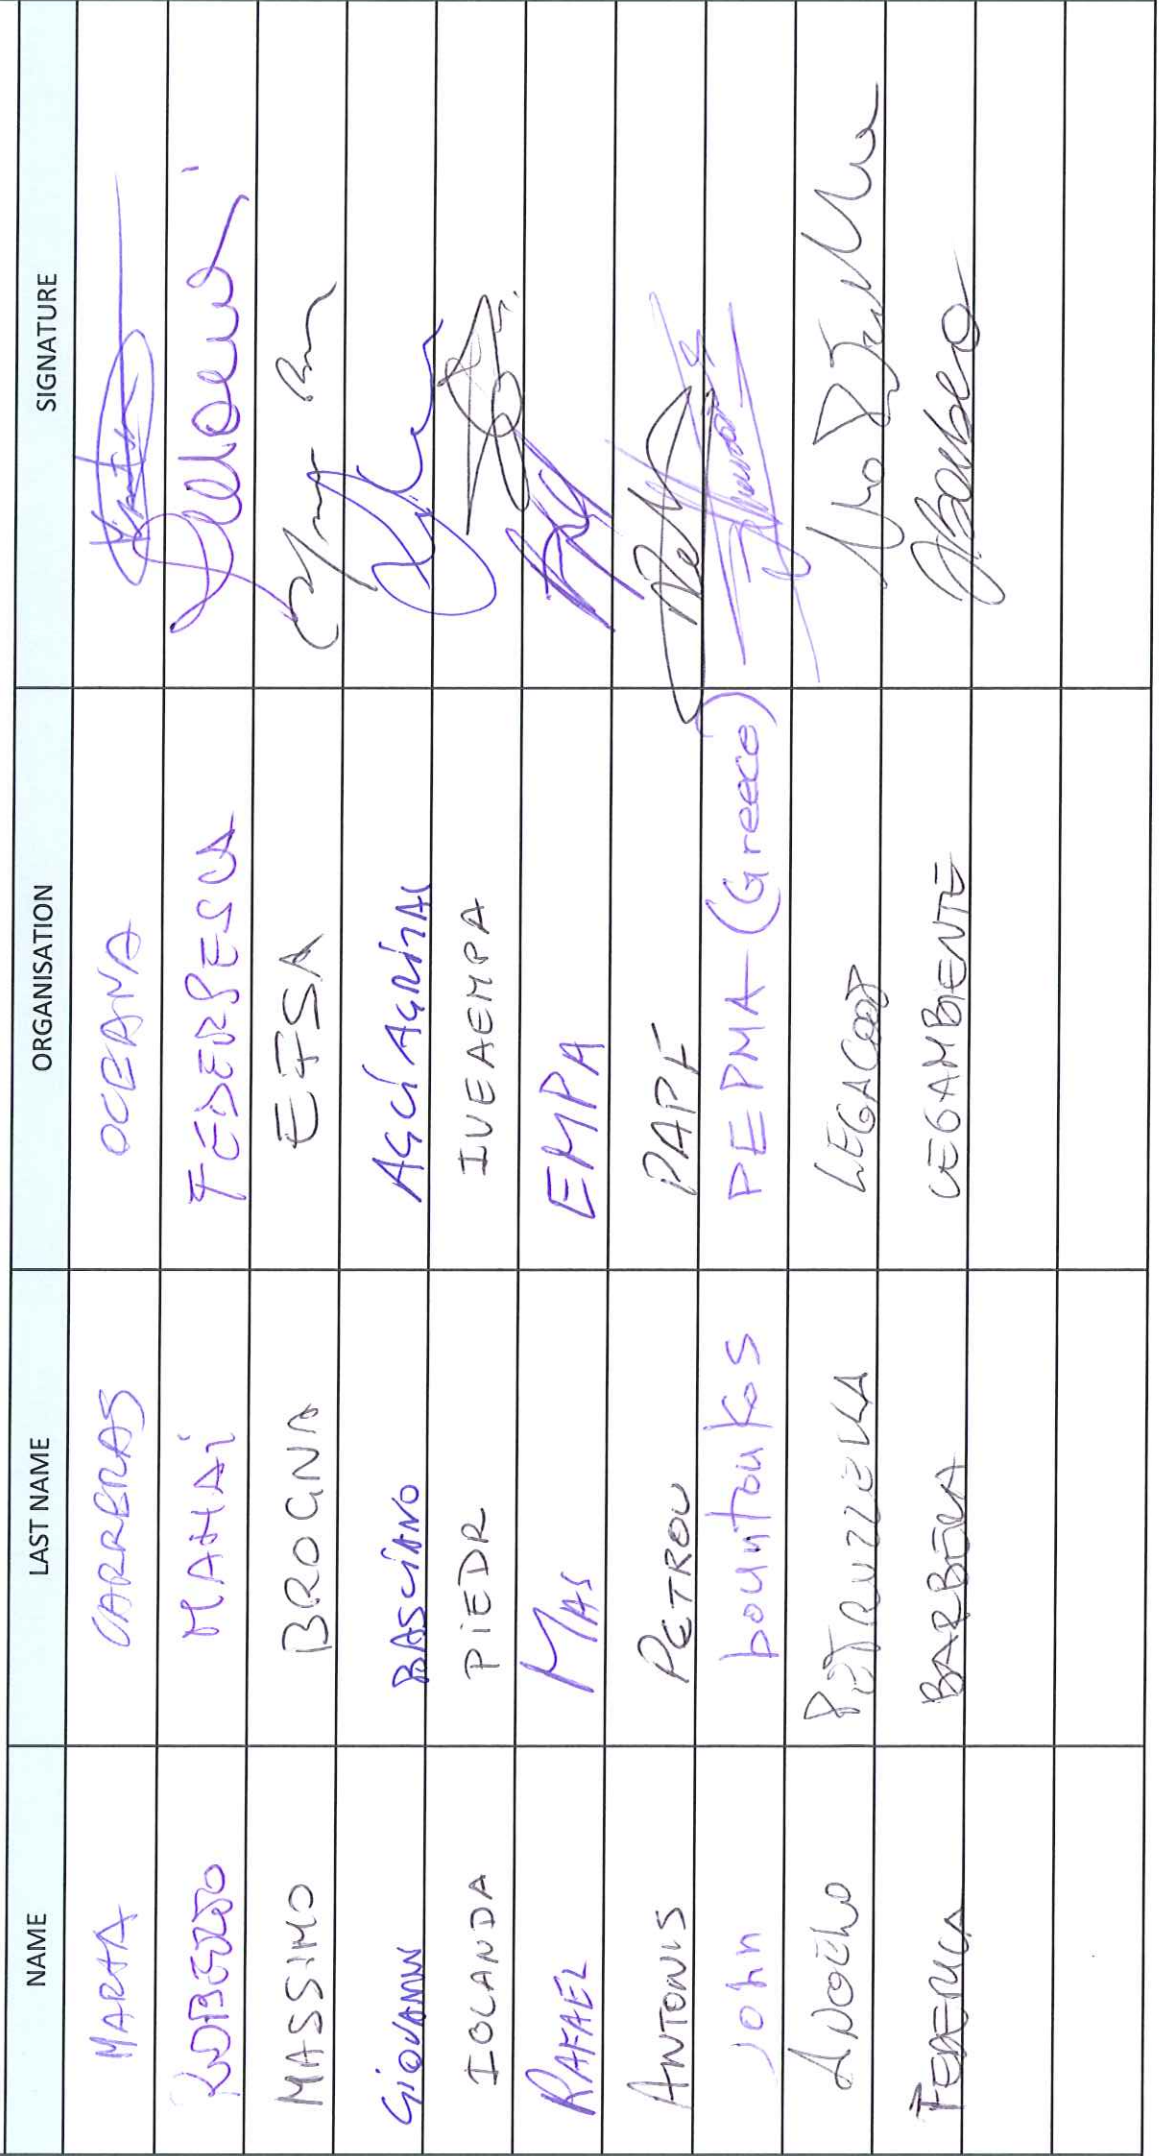 NAME LAST NAME ORGANISATION SIGNATURE
MARTA CARRERAS OCEANA
ROBERTO MANAI FEDERPESCA
MASSIMO BROGNA EFSA
GIOVANNI BASCIANO AGCI AGRITAL
IOLANDA PIEDR IVEAEMPA
RAFAEL MAS EMPA
ANTONIS PETROU PAPF
John bountoukos PEPMA (Greece)
ANGELO PETRUZZELLA LEGACOOP
FEDERICA BARBERA LEGAMBIENTE